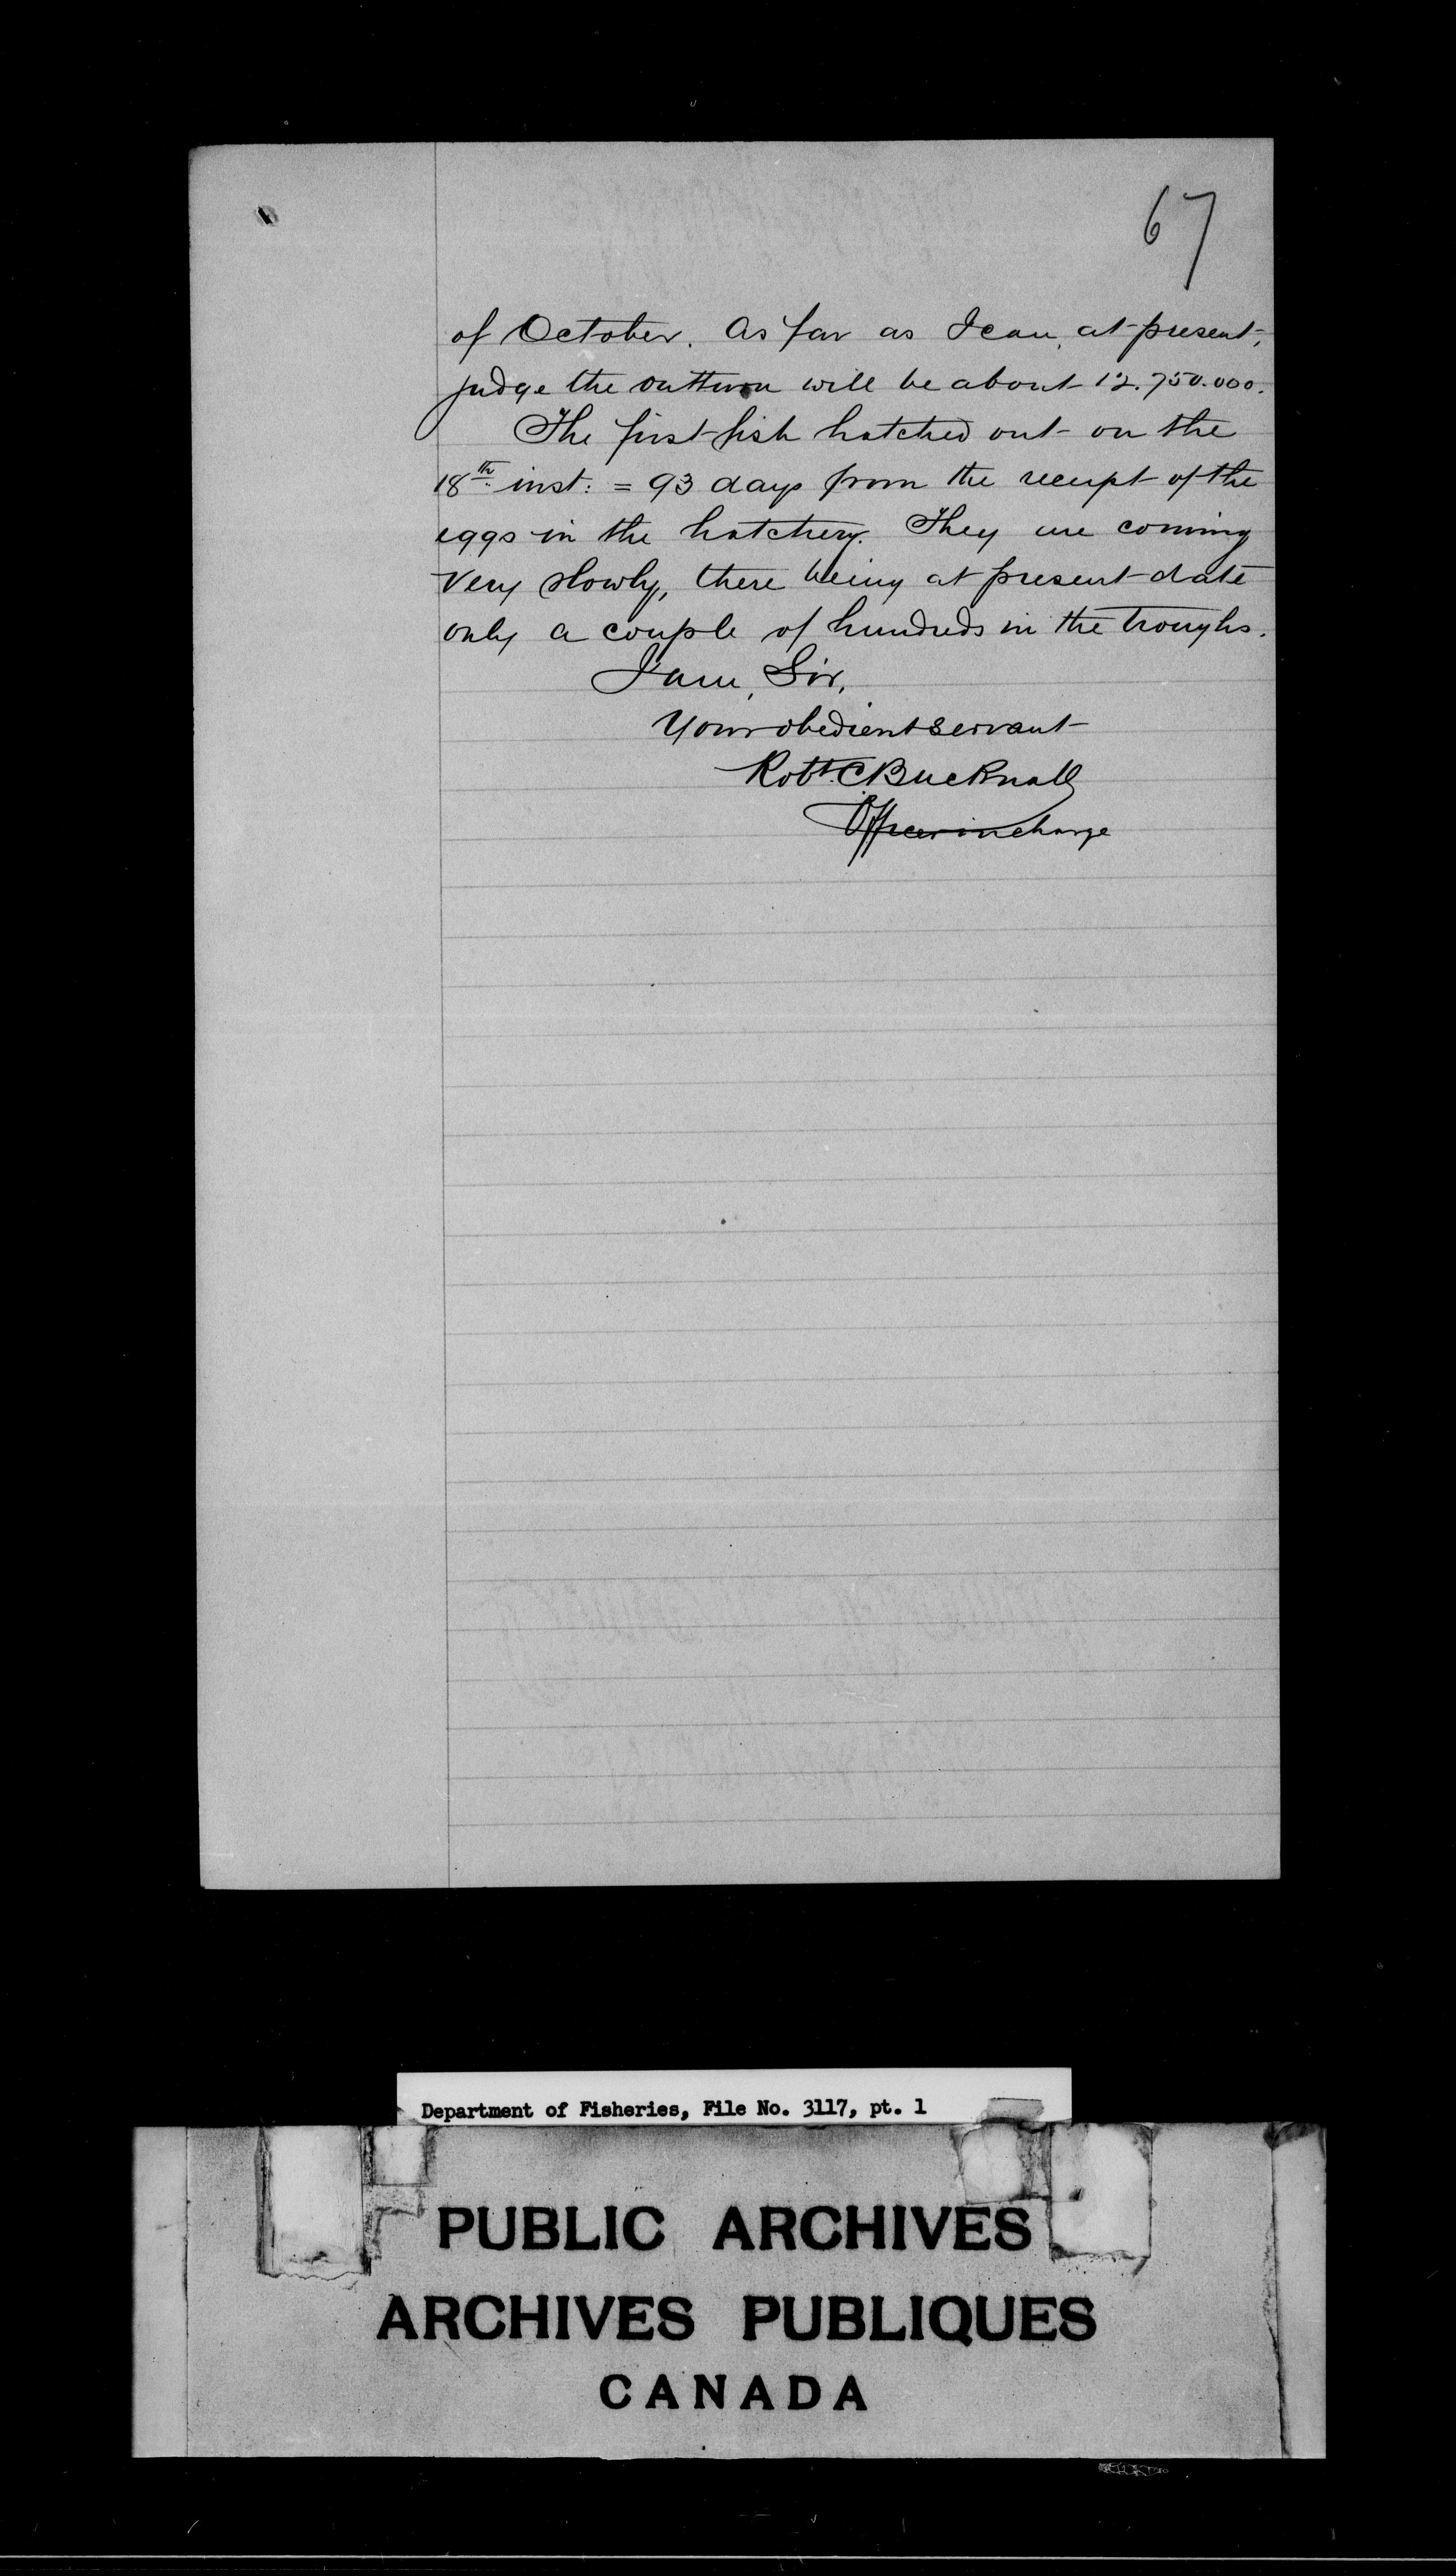 67
of October. As far as I can, at present,
judge the outturn will be about 12.750.000.
The first fish hatched out on the
18th inst: = 93 days from the receipt of the
eggs in the hatchery. They are coming
very slowly, there being at present date
only a couple of hundreds in the troughs.
I am, Sir,
Your obedient servant
Robt. C Bucknall
Officer in charge
Department of Fisheries, File No. 3117, pt. 1
PUBLIC ARCHIVES
ARCHIVES PUBLIQUES
CANADA